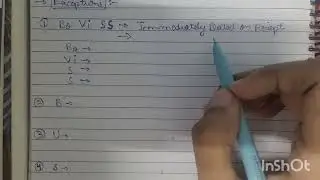 Exceptions :-
① Bq Vi SS :- Immediately Based on Receipt
→
Bq →
Vi →
S →
S →
② B →
③ U →
④ S →
InShOt